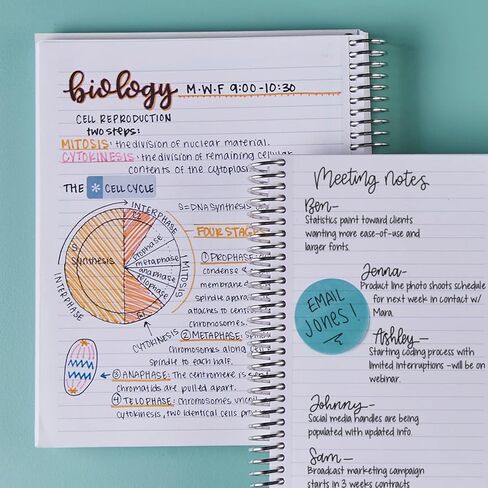 biology M·W·F 9:00-10:30
CELL REPRODUCTION
two steps:
MITOSIS: the division of nuclear material.
CYTOKINESIS: the division of remaining cellular
contents of the cytoplasm
THE * CELL CYCLE
S=DNA synthesis
INTERPHASE
G2
S
Synthesis
prophase
metaphase
anaphase
telophase
MITOSIS
INTERPHASE
G1
CYTOKINESIS
FOUR STAGES
① PROPHASE:
condense &
membrane
spindle appara
attaches to cent
chromosomes.
② METAPHASE:
chromosomes along
spindle to each half.
③ ANAPHASE: The centromere is
chromatids are pulled apart.
④ TELOPHASE: chromosomes uncoil
cytokinesis, two identical cells
Meeting notes
Ben—
Statistics point toward clients
wanting more ease-of-use and
larger fonts.
Jenna—
Product line photo shoots schedule
for next week in contact w/
Mara.
EMAIL
JONES!
Ashley—
Starting coding process with
limited interruptions -will be on
webinar.
Johnny—
Social media handles are being
populated with updated info.
Sam—
Broadcast marketing campaign
starts in 3 weeks contracts